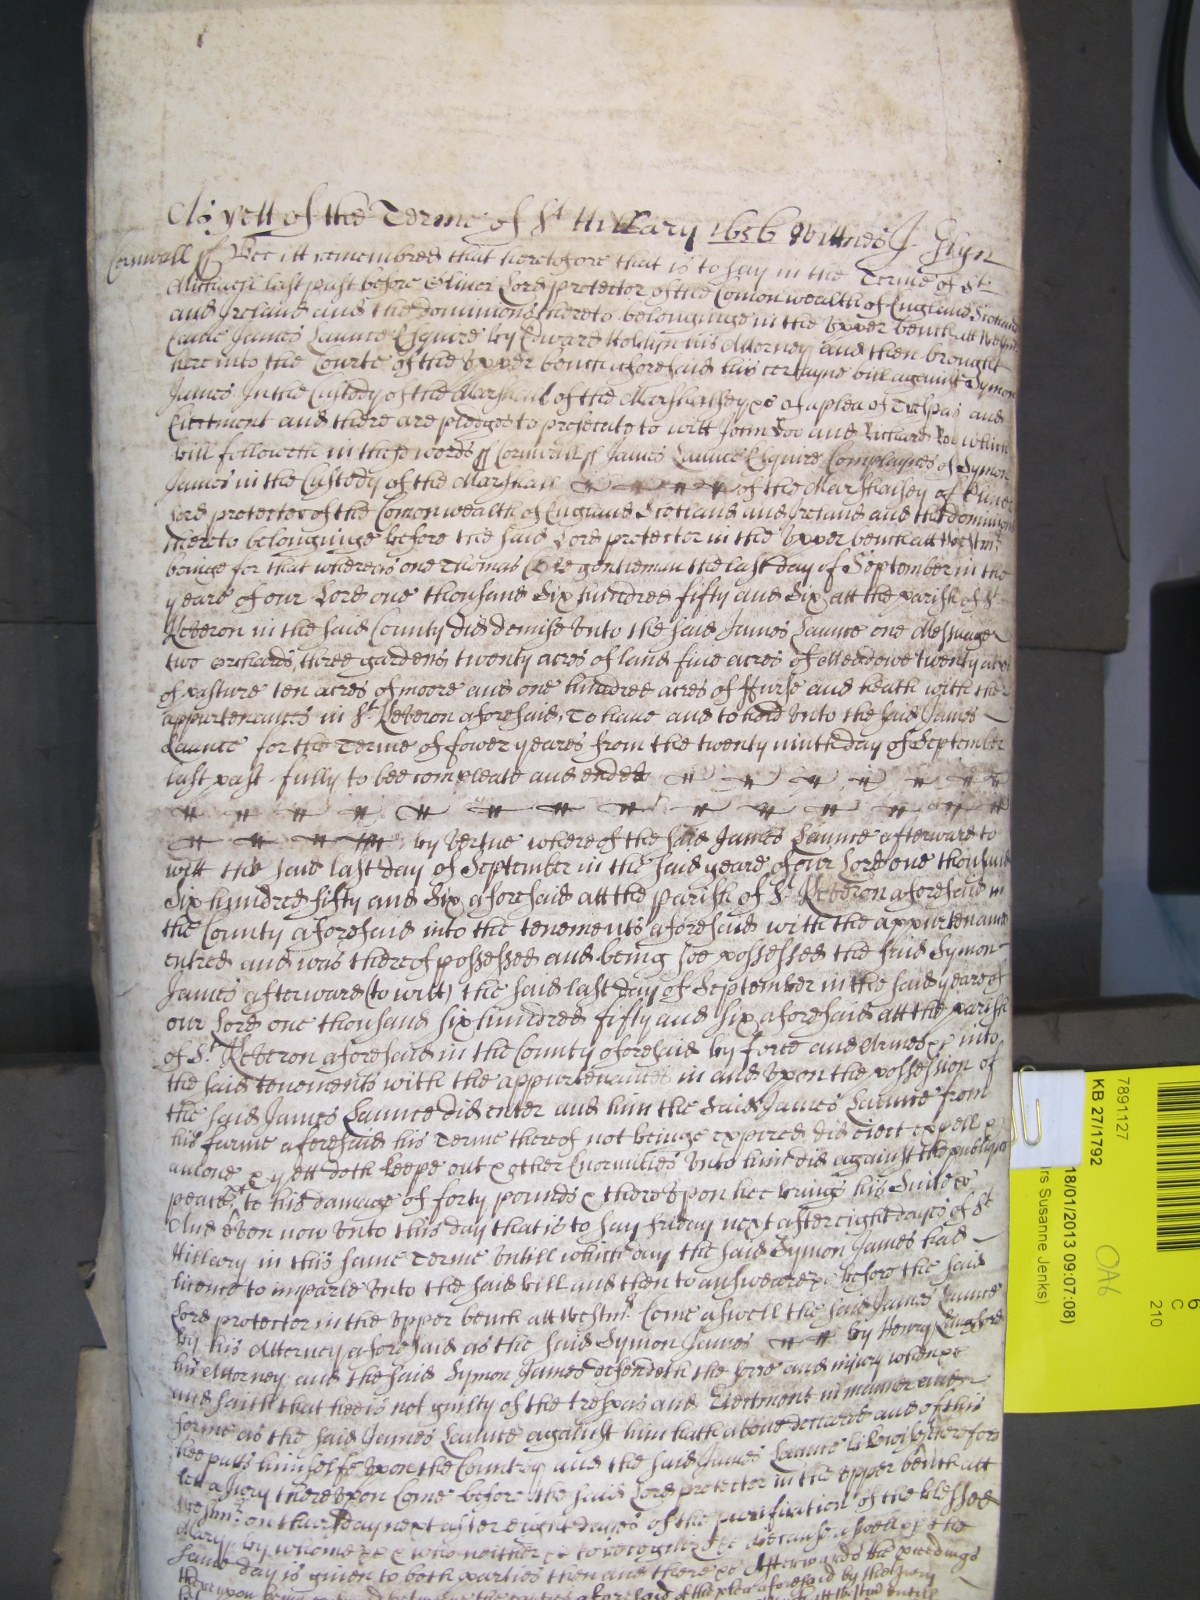 As yett of the Terme of St Hillary 1656 Wittnes J Glyn
Cornwall ss Bee itt remembred that heretofore that is to say in the Terme of St
Michaell last past before Oliver Lord protector of the Comonwealth of England Scotland
and Ireland and the dominions thereto belonginge in the Upper bench att
Came James Launce Esquire by Edward his Attorney and then brought
here into the Courte of the Upper bench aforesaid his certayne bill against Symon
James In the Custody of the Marshall of the Marshallsey &c of a plea of Trespas and
Eiectment and there are pledges to prosecute to witt John Doo and Richard Roo which
bill followeth in these words ss Cornwall ss James Launce Esquire Complaynes of Symon
James in the Custody of the Marshall of the Marshalsey of
Lord protector of the Comonwealth of England Scotland and Ireland and the dominions
thereto belonginge before the said Lord protector in the Upper bench att Westmr
beinge for that whereas one Thomas gentleman the last day of September in the
yeare of our Lord one thousand Six hundred fifty and Six att the parish of St
Keveron in the said County did demise unto the said James Launce one Messuage
two orchards three gardens twenty acres of land five acres of Meadowe twenty acres
of pasture ten acres of moore and one hundred acres of ffurse and heath with the
appurtenances in St Keveron aforesaid To have and to hold unto the said James
Launce for the Terme of fower yeares from the twenty ninth day of September
last past fully to bee compleate and ended
by Vertue whereof the said James Launce afterward to
witt the said last day of September in the said yeare of our Lord one thousand
Six hundred fifty and Six aforesaid att the parish of St Keveron aforesaid in
the County aforesaid into the tenements aforesaid with the appurtenances
entred and was thereof possessed and being soe possessed the said Symon
James afterward (to witt) the said last day of September in the said yeare of
our Lord one thousand six hundred fifty and six aforesaid att the parish
of St Keveron aforesaid in the County aforesaid by force and Armes &c into
the said tenements with the appurtenances in and upon the possession of
the said James Launce did enter and him the said James Launce from
his farme aforesaid his Terme thereof not beinge expired did eiect expell &
amove & yett doth keepe out & other Enormities unto him did against the publique
peace &c to his damage of forty pounds & thereupon hee brings his Suite &c
And Even now unto this day that is to say friday next after eight dayes of St
Hillary in this same Terme untill which day the said Symon James had
licence to imparle unto the said bill and then to answeare &c before the said
Lord protector in the upper bench att Westmr Come aswell the said James Launce
by his Attorney aforesaid as the said Symon James by Henry
his Attorney and the said Symon James defendeth the force and iniury when &c
and saith that hee is not guilty of the trespas and Eiectment in manner and
forme as the said James Launce against him hath above declared and of this
hee putts himselfe upon the Country and the said James Launce likewise therefore
lett a Jury thereupon Come before the said Lord protector in the upper bench att
Westmr on thursday next after eight dayes of the purification of the blessed
Mary by whome &c & who neither &c to recognize &c because aswell &c the
same day is given to both parties then and there &c Afterwards the proceedings
thereupon between the parties aforesaid of the plea aforesaid by the Jury
7891127
KB 27/1792
18/01/2013 09:07:08)
rs Susanne Jenks)
OA6
6
C
210